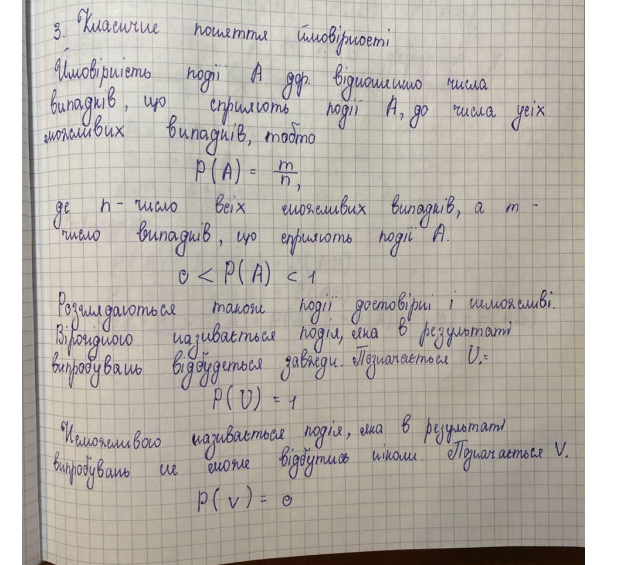 3. Класичне поняття ймовірності
Ймовірність події А дор. відношенню числа
випадків, що сприяють події А, до числа усіх
можливих випадків, тобто
P(A) = m/n,
де n - число всіх можливих випадків, а m -
число випадків, що сприяють події А.
0 < P(A) < 1
Розглядаються також події достовірні і неможливі.
Вірогідною називається подія, яка в результаті
випробувань відбудеться завжди. Позначається U.
P(U) = 1
Неможливою називається подія, яка в результаті
випробувань не може відбутись ніколи. Позначається V.
P(V) = 0